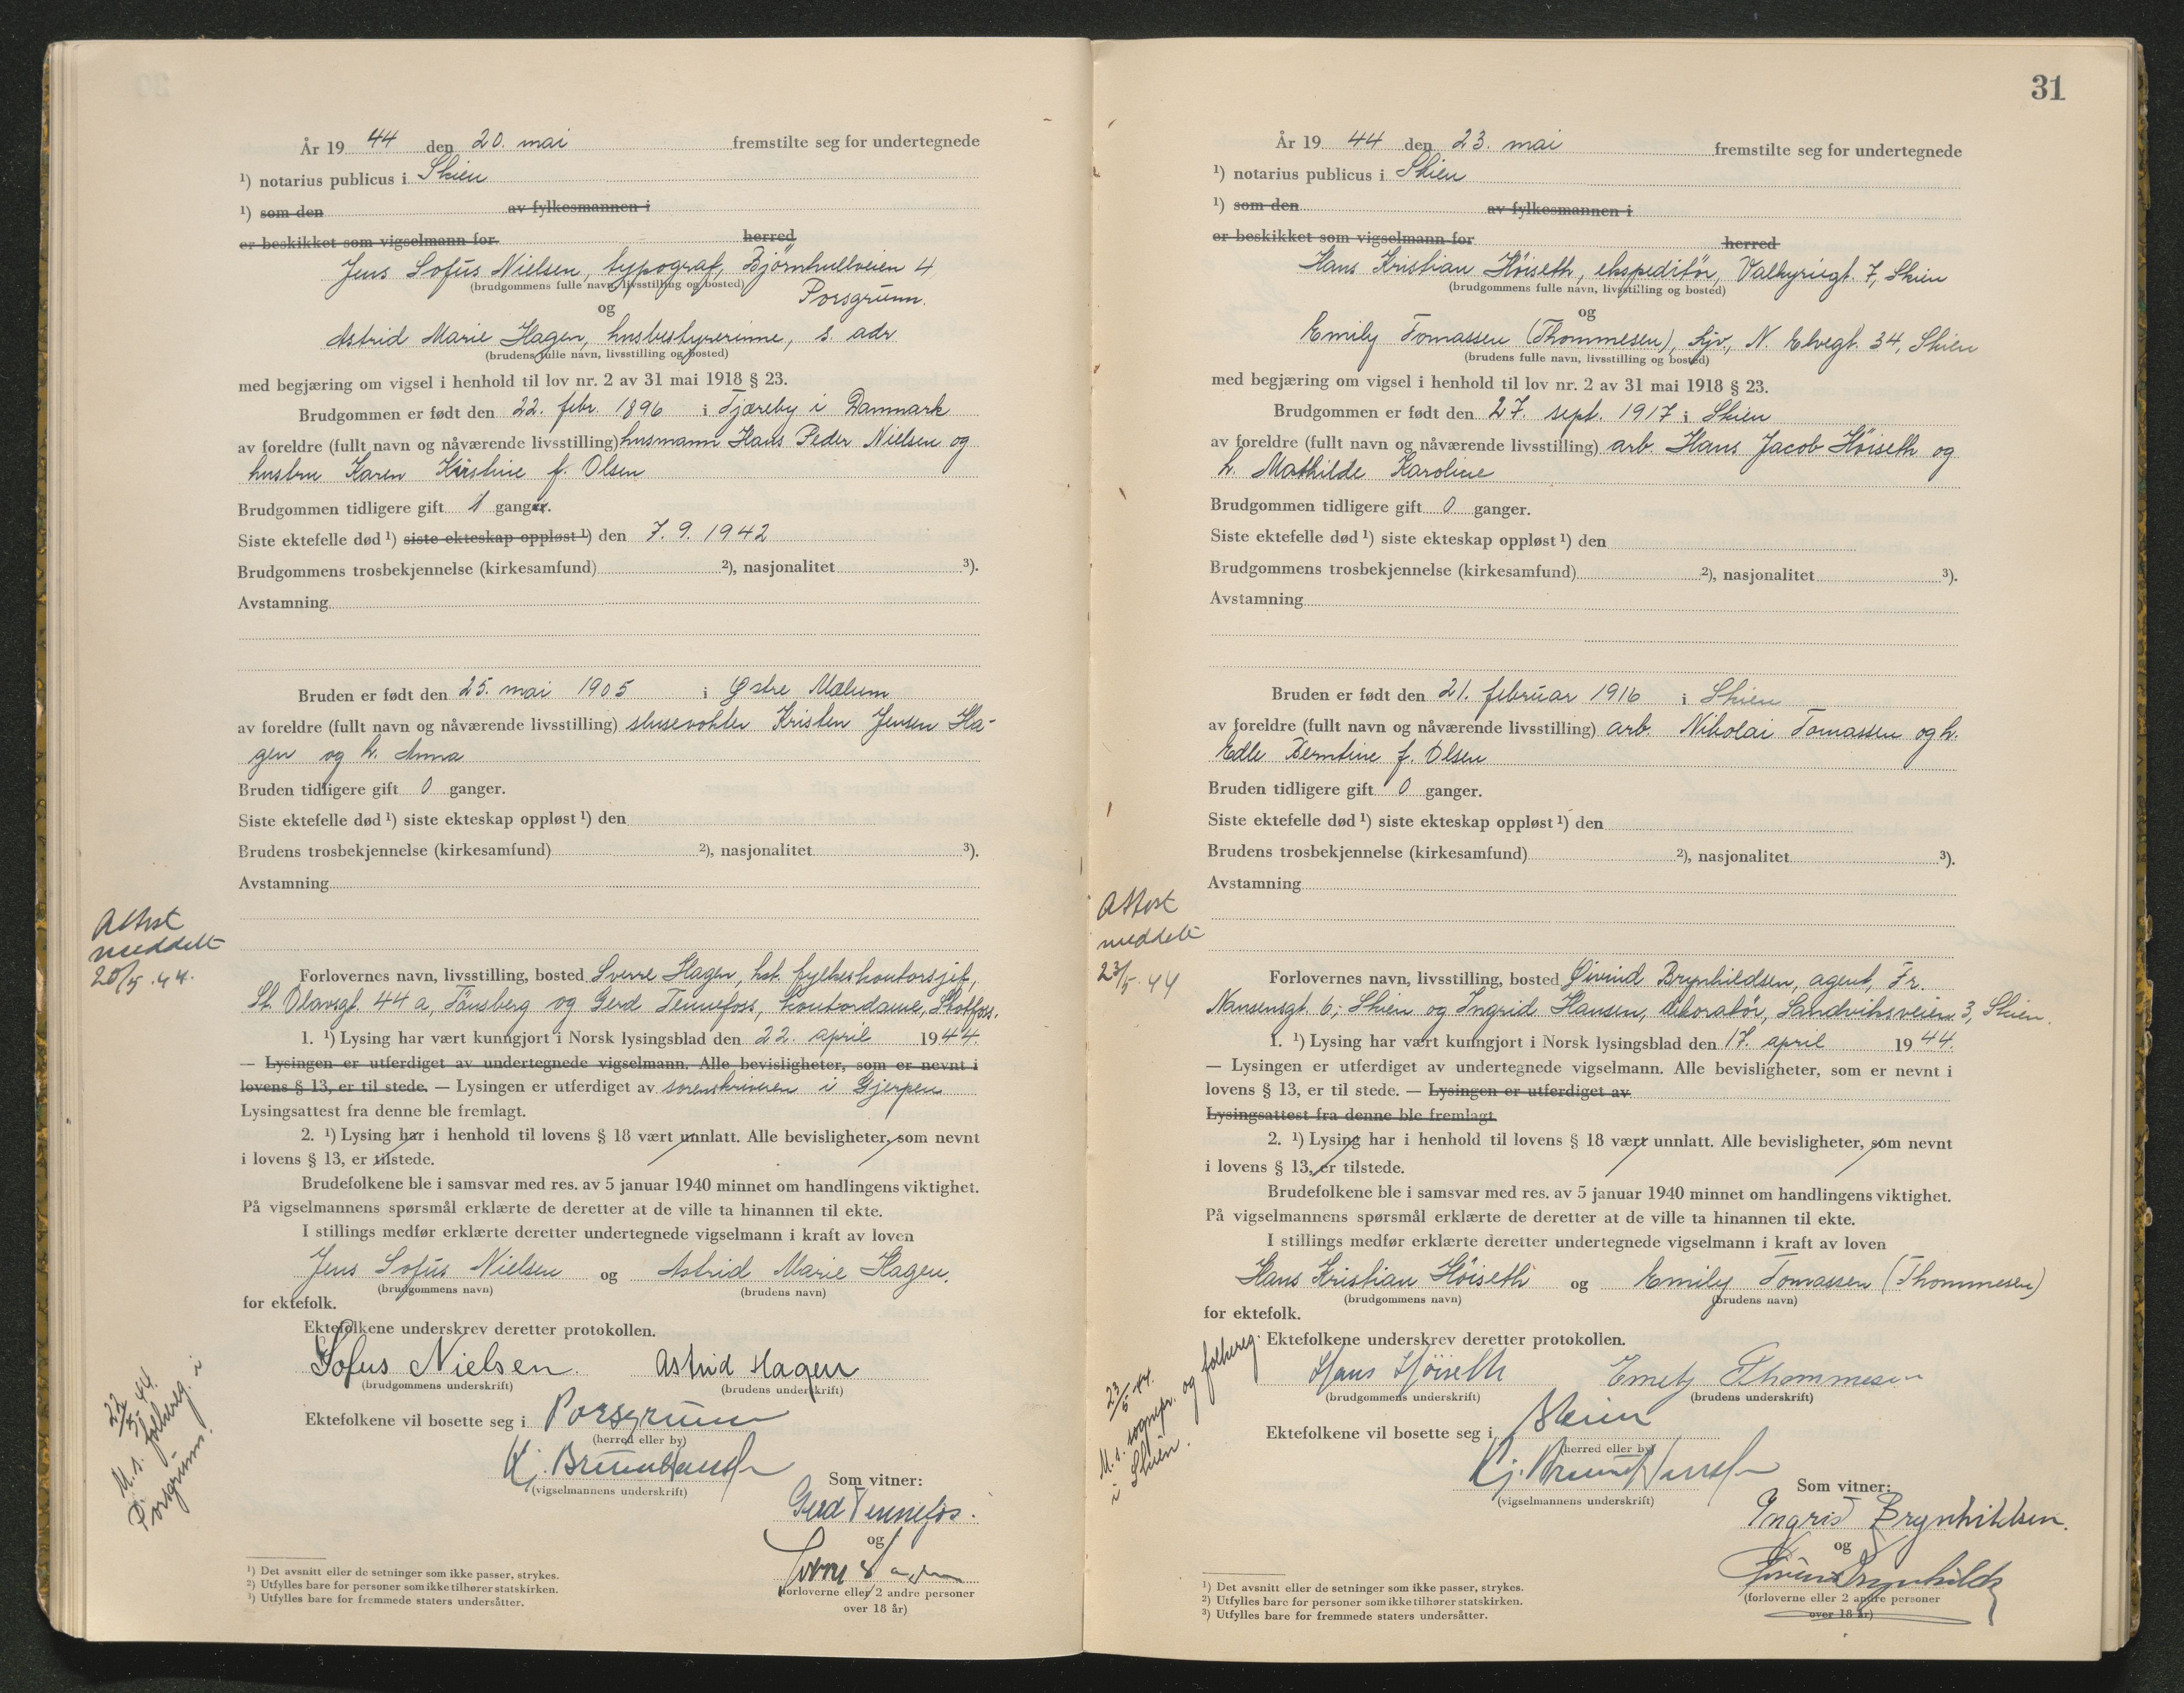 År 19 44 den 20. mai fremstilte seg for undertegnede
¹) notarius publicus i Skien
¹) som den av fylkesmannen i
er beskikket som vigselmann for herred
Jens Sofus Nielsen, typograf, Björnhullveien 4
(brudgommens fulle navn, livsstilling og bosted)
Porsgrunn.
og
Astrid Marie Hagen, husbestyrerinne, s. adr
(brudens fulle navn, livsstilling og bosted)
med begjæring om vigsel i henhold til lov nr. 2 av 31 mai 1918 § 23.
Brudgommen er født den 22. febr. 1896 i Tjæreby i Danmark
av foreldre (fullt navn og nåværende livsstilling) husmann Hans Peder Nielsen og
hustru Karen Kirstine f. Olsen
Brudgommen tidligere gift 1 ganger.
Siste ektefelle død ¹) siste ekteskap oppløst ¹) den 7. 9. 1942
Brudgommens trosbekjennelse (kirkesamfund) ²), nasjonalitet ³).
Avstamning
Bruden er født den 25. mai 1905 i Østre Mælum
av foreldre (fullt navn og nåværende livsstilling) slusevokter Kristen Jensen Ha-
gen og h. Anna
Bruden tidligere gift 0 ganger.
Siste ektefelle død ¹) siste ekteskap oppløst ¹) den
Brudens trosbekjennelse (kirkesamfund) ²), nasjonalitet ³).
Avstamning
Attest
meddelt
20/5.44.
Forlovernes navn, livsstilling, bosted Sverre Hagen, hst. fylkeskontorsjef,
St. Olavsgt. 44 a, Tönsberg og Gerd Tennefoss, kontordame, Skotfoss.
1. ¹) Lysing har vært kunngjort i Norsk lysingsblad den 22. april 1944.
— Lysingen er utferdiget av undertegnede vigselmann. Alle bevisligheter, som er nevnt i
lovens § 13, er til stede. — Lysingen er utferdiget av sorenskriveren i Gjerpen
Lysingsattest fra denne ble fremlagt.
2. ¹) Lysing har i henhold til lovens § 18 vært unnlatt. Alle bevisligheter, som nevnt
i lovens § 13, er tilstede.
Brudefolkene ble i samsvar med res. av 5 januar 1940 minnet om handlingens viktighet.
På vigselmannens spørsmål erklærte de deretter at de ville ta hinannen til ekte.
I stillings medfør erklærte deretter undertegnede vigselmann i kraft av loven
Jens Sofus Nielsen og Astrid Marie Hagen.
(brudgommens navn) (brudens navn)
for ektefolk.
Ektefolkene underskrev deretter protokollen.
Sofus Nielsen. Astrid Hagen
(brudgommens underskrift) (brudens underskrift)
22/5-44.
M. s. folkereg. i
Porsgrunn.
Ektefolkene vil bosette seg i Porsgrunn
(herred eller by)
Kj. Bruun Hansen
(vigselmannens underskrift)
Som vitner:
Gerd Tennefos.
og
Sverre Hagen
(forloverne eller 2 andre personer
over 18 år)
¹) Det avsnitt eller de setninger som ikke passer, strykes.
²) Utfylles bare for personer som ikke tilhører statskirken.
³) Utfylles bare for fremmede staters undersåtter.
31
År 19 44 den 23. mai fremstilte seg for undertegnede
¹) notarius publicus i Skien
¹) som den av fylkesmannen i
er beskikket som vigselmann for herred
Hans Kristian Höiseth, ekspeditör, Valkyriegt. 7, Skien
(brudgommens fulle navn, livsstilling og bosted)
og
Emily Tomassen (Thommesen), hjv., N. Elvegt. 34, Skien
(brudens fulle navn, livsstilling og bosted)
med begjæring om vigsel i henhold til lov nr. 2 av 31 mai 1918 § 23.
Brudgommen er født den 27. sept. 1917 i Skien
av foreldre (fullt navn og nåværende livsstilling) arb. Hans Jacob Höiseth og
h. Mathilde Karoline
Brudgommen tidligere gift 0 ganger.
Siste ektefelle død ¹) siste ekteskap oppløst ¹) den
Brudgommens trosbekjennelse (kirkesamfund) ²), nasjonalitet ³).
Avstamning
Bruden er født den 21. februar 1916 i Skien
av foreldre (fullt navn og nåværende livsstilling) arb. Nikolai Tomassen og h.
Edle Berntine f. Olsen
Bruden tidligere gift 0 ganger.
Siste ektefelle død ¹) siste ekteskap oppløst ¹) den
Brudens trosbekjennelse (kirkesamfund) ²), nasjonalitet ³).
Avstamning
Attest
meddelt
23/5.44
Forlovernes navn, livsstilling, bosted Øivind Brynhildsen, agent, Fr.
Nansensgt. 6, Skien og Ingrid Hansen, dekoratör, Sandviksveien 3, Skien.
1. ¹) Lysing har vært kunngjort i Norsk lysingsblad den 17. april 1944.
— Lysingen er utferdiget av undertegnede vigselmann. Alle bevisligheter, som er nevnt i
lovens § 13, er til stede. — Lysingen er utferdiget av
Lysingsattest fra denne ble fremlagt.
2. ¹) Lysing har i henhold til lovens § 18 vært unnlatt. Alle bevisligheter, som nevnt
i lovens § 13, er tilstede.
Brudefolkene ble i samsvar med res. av 5 januar 1940 minnet om handlingens viktighet.
På vigselmannens spørsmål erklærte de deretter at de ville ta hinannen til ekte.
I stillings medfør erklærte deretter undertegnede vigselmann i kraft av loven
Hans Kristian Höiseth og Emily Tomassen (Thommesen)
(brudgommens navn) (brudens navn)
for ektefolk.
Ektefolkene underskrev deretter protokollen.
Hans Höiseth Emely Thommesen
(brudgommens underskrift) (brudens underskrift)
23/5.44.
M. s. sognepr. og folkereg.
i Skien.
Ektefolkene vil bosette seg i Skien
(herred eller by)
Kj. Bruun Hansen
(vigselmannens underskrift)
Som vitner:
Ingrid Brynhildsen.
og
Øivind Brynhilds
(forloverne eller 2 andre personer
over 18 år)
¹) Det avsnitt eller de setninger som ikke passer, strykes.
²) Utfylles bare for personer som ikke tilhører statskirken.
³) Utfylles bare for fremmede staters undersåtter.